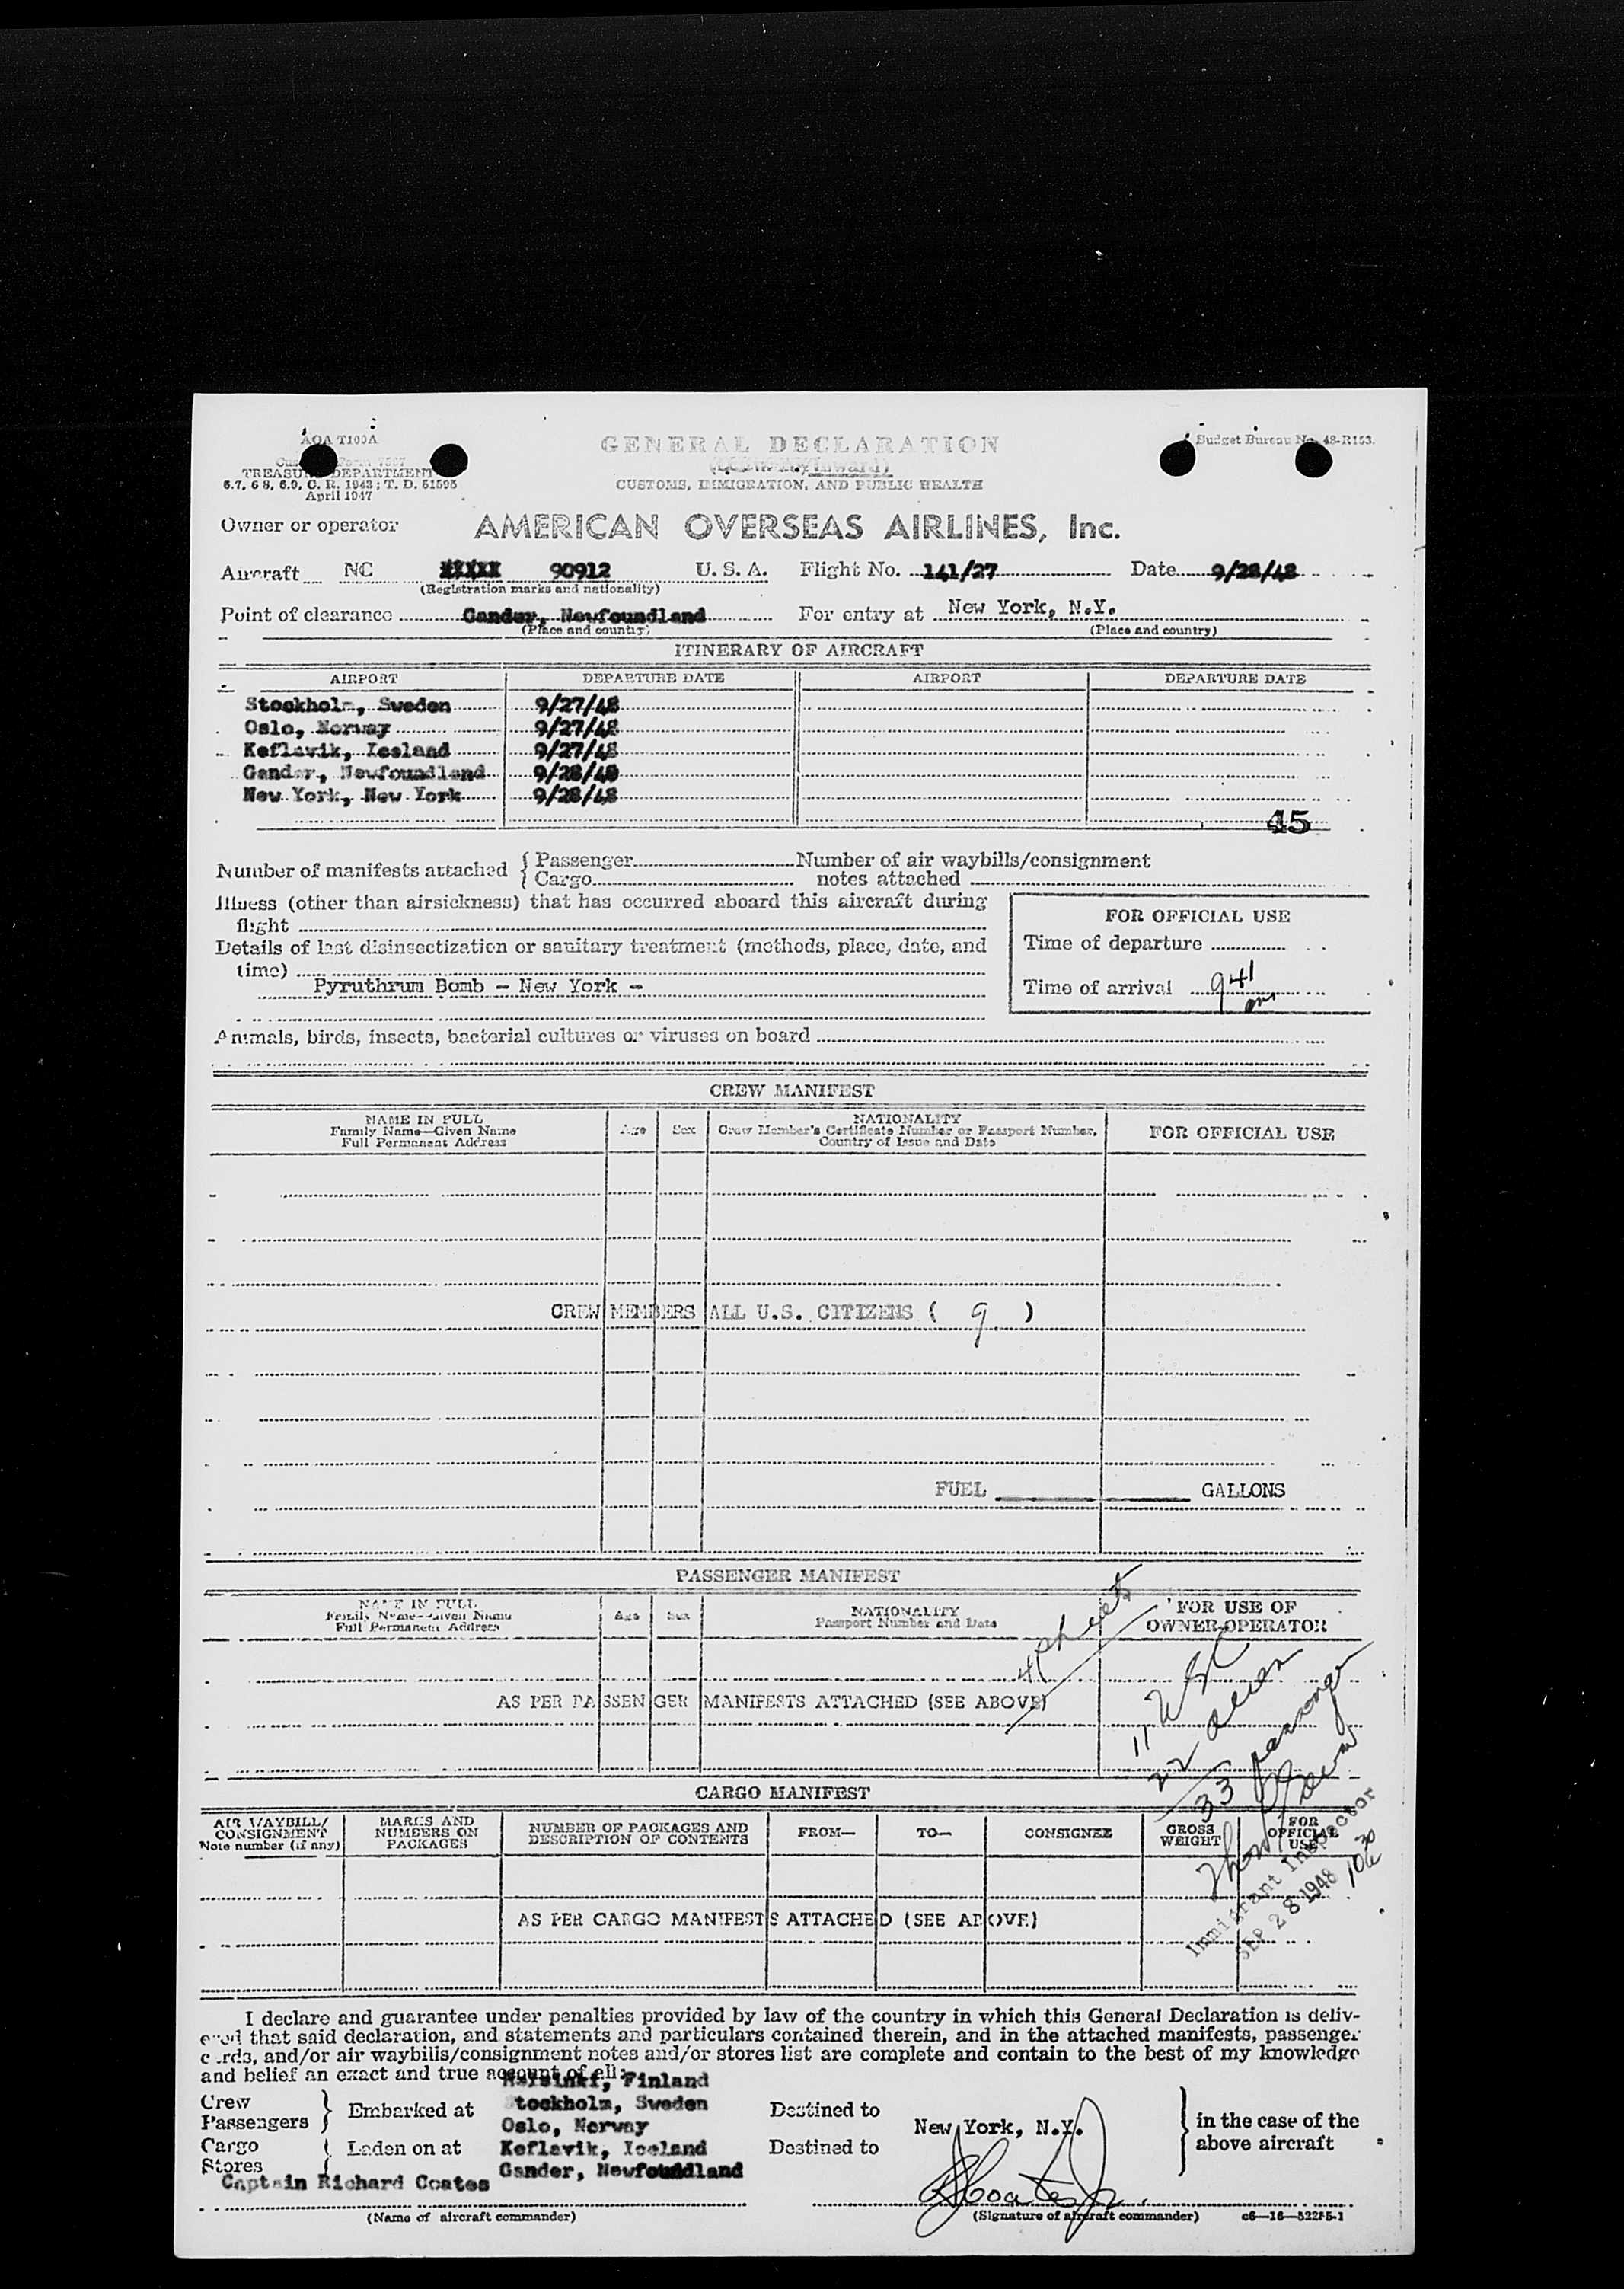 AOA T100A
Customs Form 7507
TREASURY DEPARTMENT
6.7, 6 8, 6.9, C. R. 1943; T. D. 51595
April 1947
GENERAL DECLARATION
(Inward)
CUSTOMS, IMMIGRATION, AND PUBLIC HEALTH
Budget Bureau No. 48-R153.
Owner or operator AMERICAN OVERSEAS AIRLINES, Inc.
Aircraft NC 90912 U. S. A. Flight No. 141/27 Date 9/28/48
(Registration marks and nationality)
Point of clearance Gander, Newfoundland For entry at New York, N.Y.
(Place and country) (Place and country)
ITINERARY OF AIRCRAFT
AIRPORT DEPARTURE DATE AIRPORT DEPARTURE DATE
Stockholm, Sweden 9/27/48
Oslo, Norway 9/27/48
Keflavik, Iceland 9/27/48
Gander, Newfoundland 9/28/48
New York, New York 9/28/48
45
Number of manifests attached { Passenger Number of air waybills/consignment
Cargo notes attached
Illness (other than airsickness) that has occurred aboard this aircraft during
flight
Details of last disinsectization or sanitary treatment (methods, place, date, and
time)
Pyruthrum Bomb - New York -
FOR OFFICIAL USE
Time of departure
Time of arrival 941 am
Animals, birds, insects, bacterial cultures or viruses on board
CREW MANIFEST
NAME IN FULL
Family Name—Given Name
Full Permanent Address
Age Sex
NATIONALITY
Crew Member's Certificate Number or Passport Number,
Country of Issue and Date
FOR OFFICIAL USE
CREW MEMBERS ALL U.S. CITIZENS ( 9 )
FUEL GALLONS
PASSENGER MANIFEST
NAME IN FULL
Family Name—Given Name
Full Permanent Address
Age Sex
NATIONALITY
Passport Number and Date
FOR USE OF
OWNER-OPERATOR
4 sheets
AS PER PASSENGER MANIFESTS ATTACHED (SEE ABOVE)
11 USC
22 aliens
33 passenger
CARGO MANIFEST
AIR WAYBILL/
CONSIGNMENT
Note number (if any)
MARKS AND
NUMBERS ON
PACKAGES
NUMBER OF PACKAGES AND
DESCRIPTION OF CONTENTS
FROM— TO— CONSIGNEE
GROSS
WEIGHT
FOR
OFFICIAL
USE
Immigrant Inspector
SEP 28 1948
AS PER CARGO MANIFESTS ATTACHED (SEE ABOVE)
I declare and guarantee under penalties provided by law of the country in which this General Declaration is deliv-
ered that said declaration, and statements and particulars contained therein, and in the attached manifests, passenger
cards, and/or air waybills/consignment notes and/or stores list are complete and contain to the best of my knowledge
and belief an exact and true account of all:
Helsinki, Finland
Crew
Passengers } Embarked at Stockholm, Sweden Destined to
Oslo, Norway New York, N.Y.
Cargo
Stores { Laden on at Keflavik, Iceland Destined to
Gander, Newfoundland
} in the case of the
above aircraft
Captain Richard Coates
(Name of aircraft commander)
R Coates Jr.
(Signature of aircraft commander) c6—16—52285-1